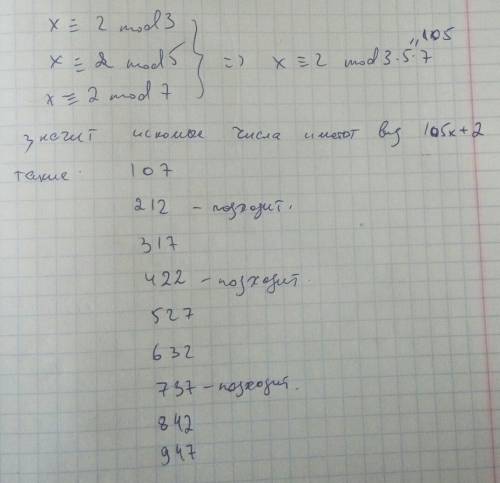 x ≡ 2 mod 3
x ≡ 2 mod 5 } => x ≡ 2 mod 3·5·7 " 105
x ≡ 2 mod 7
значит искомые числа имеют вид 105x+2
такие:
107
212 – подходит.
317
422 – подходит.
527
632
737 – подходит.
842
947